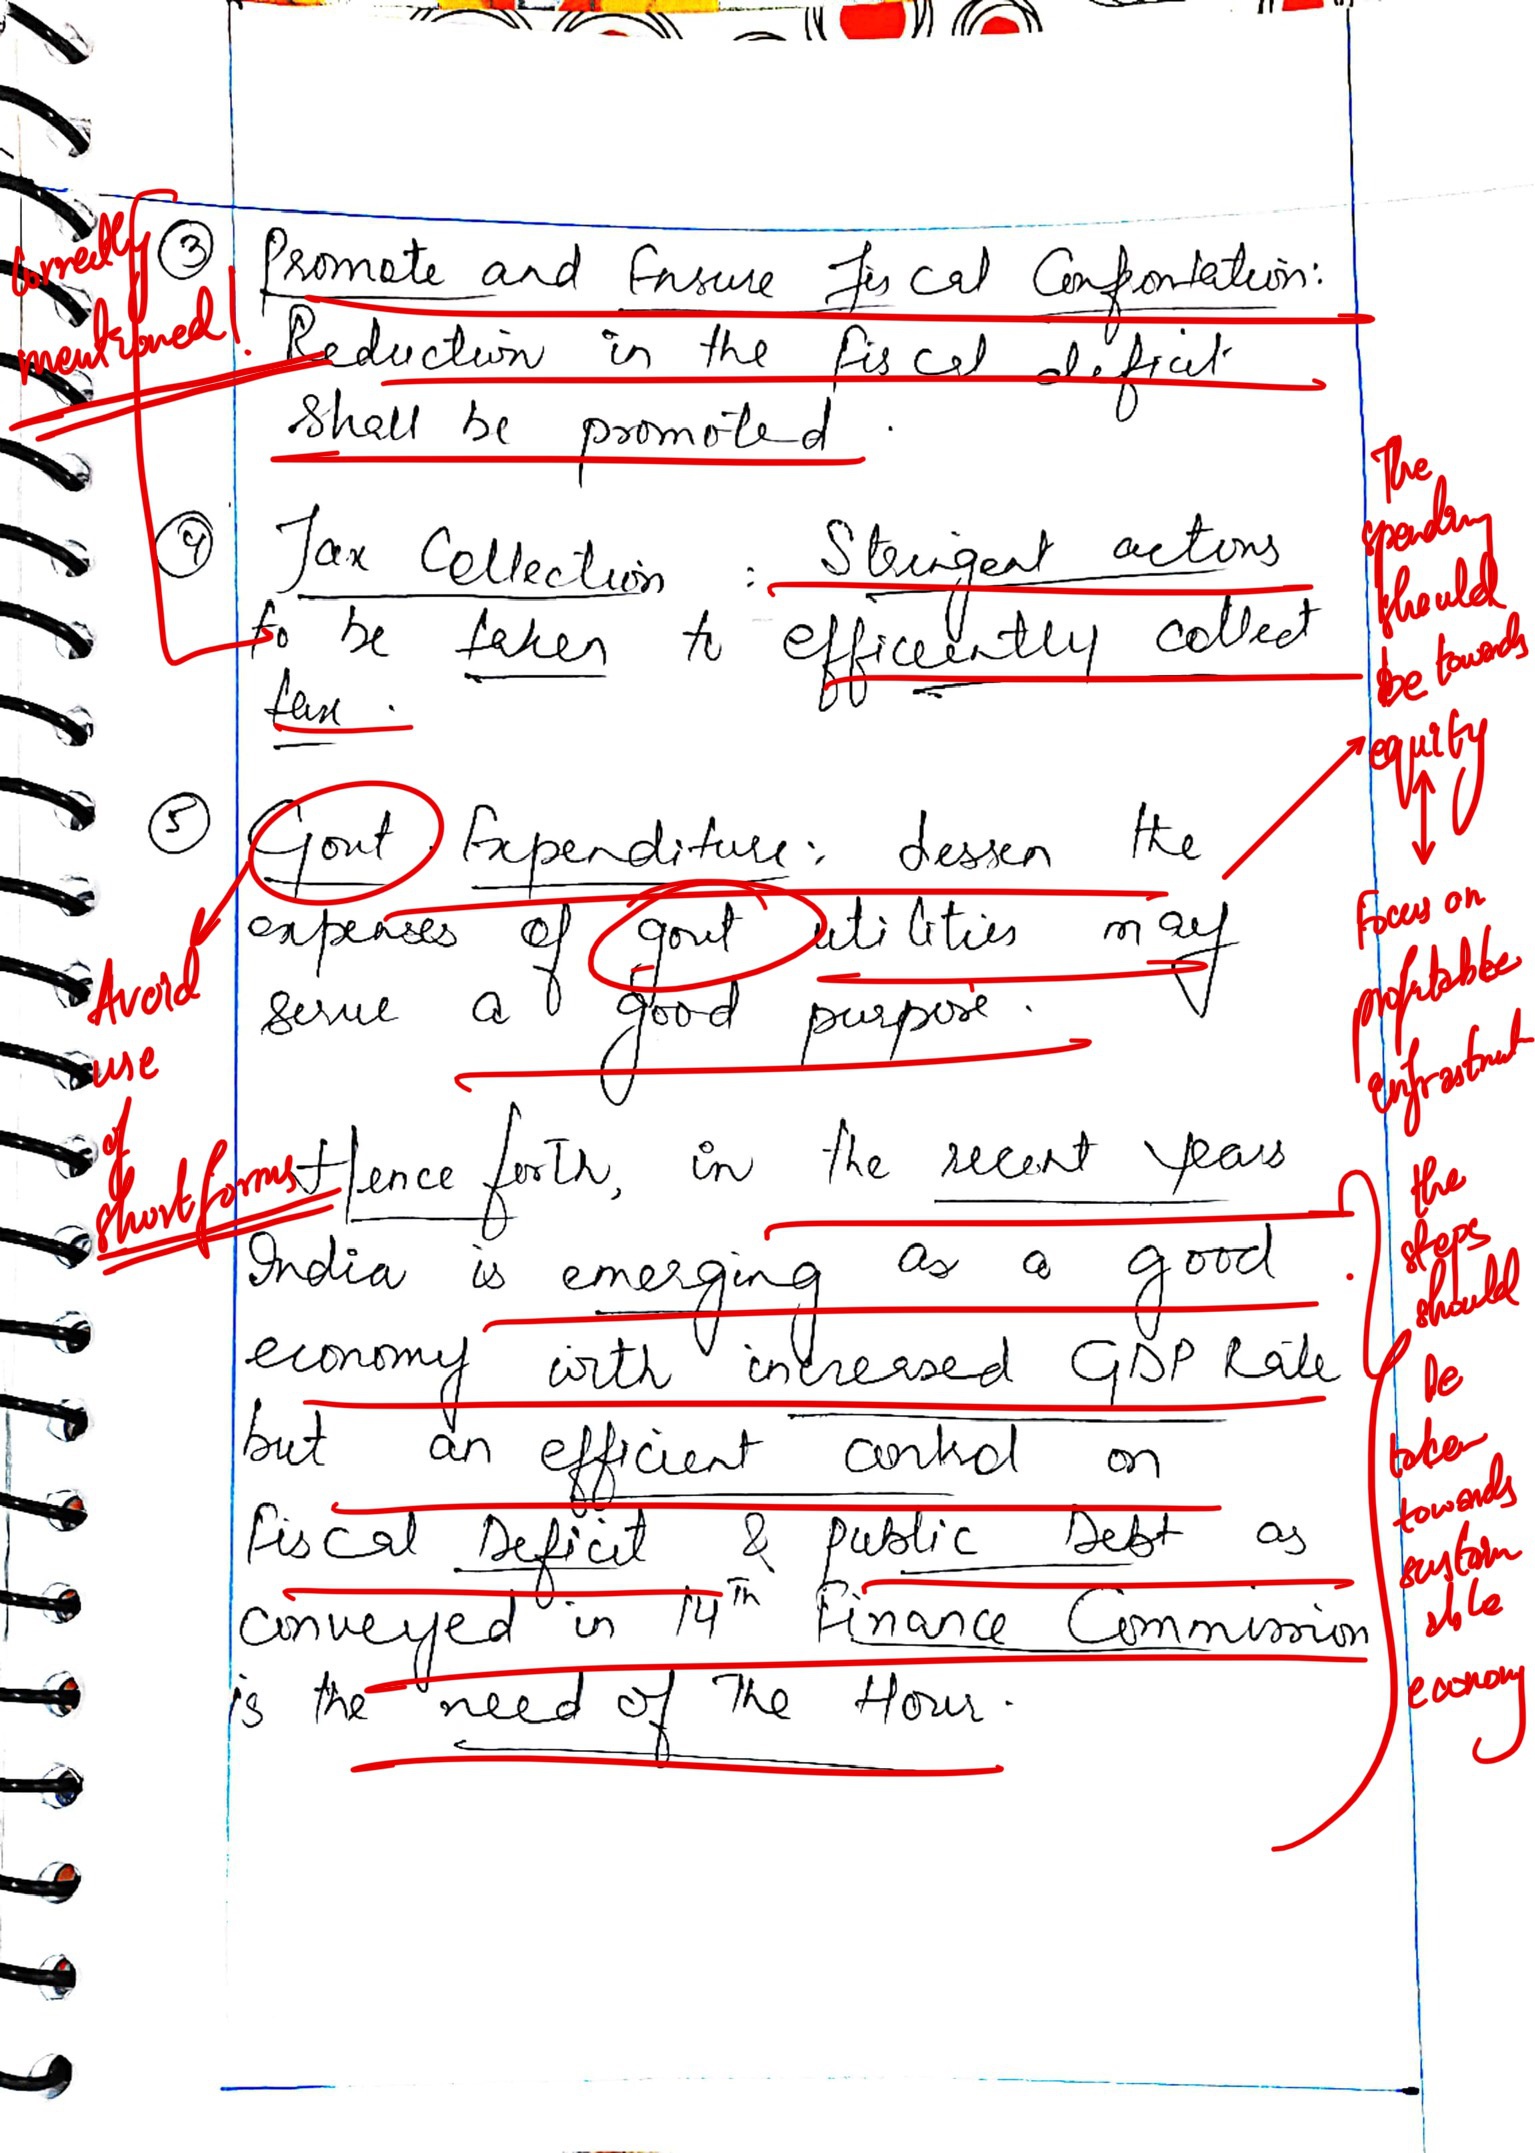 ③ Promote and Ensure Fiscal Confrontation:
Reduction in the fiscal deficit
shall be promoted.
④ Tax Collection : Stringent actions
to be taken to efficeently collect
tax.
⑤ Govt. Expenditure: dessen the
expenses of govt utilities may
serve a good purpose.
Hence forth, in the recent years
India is emerging as a good
economy with increased GDP Rate
but an efficient control on
Fiscal Deficit & public Debt as
conveyed in 14th Finance Commission
is the need of The Hour.
Correctly
mentioned!
Avoid
use
of
short forms
The
spending
should
be towards
equity
Focus on
profitable
infrastruct
the
steps
should
be
taken
towards
sustain
able
economy